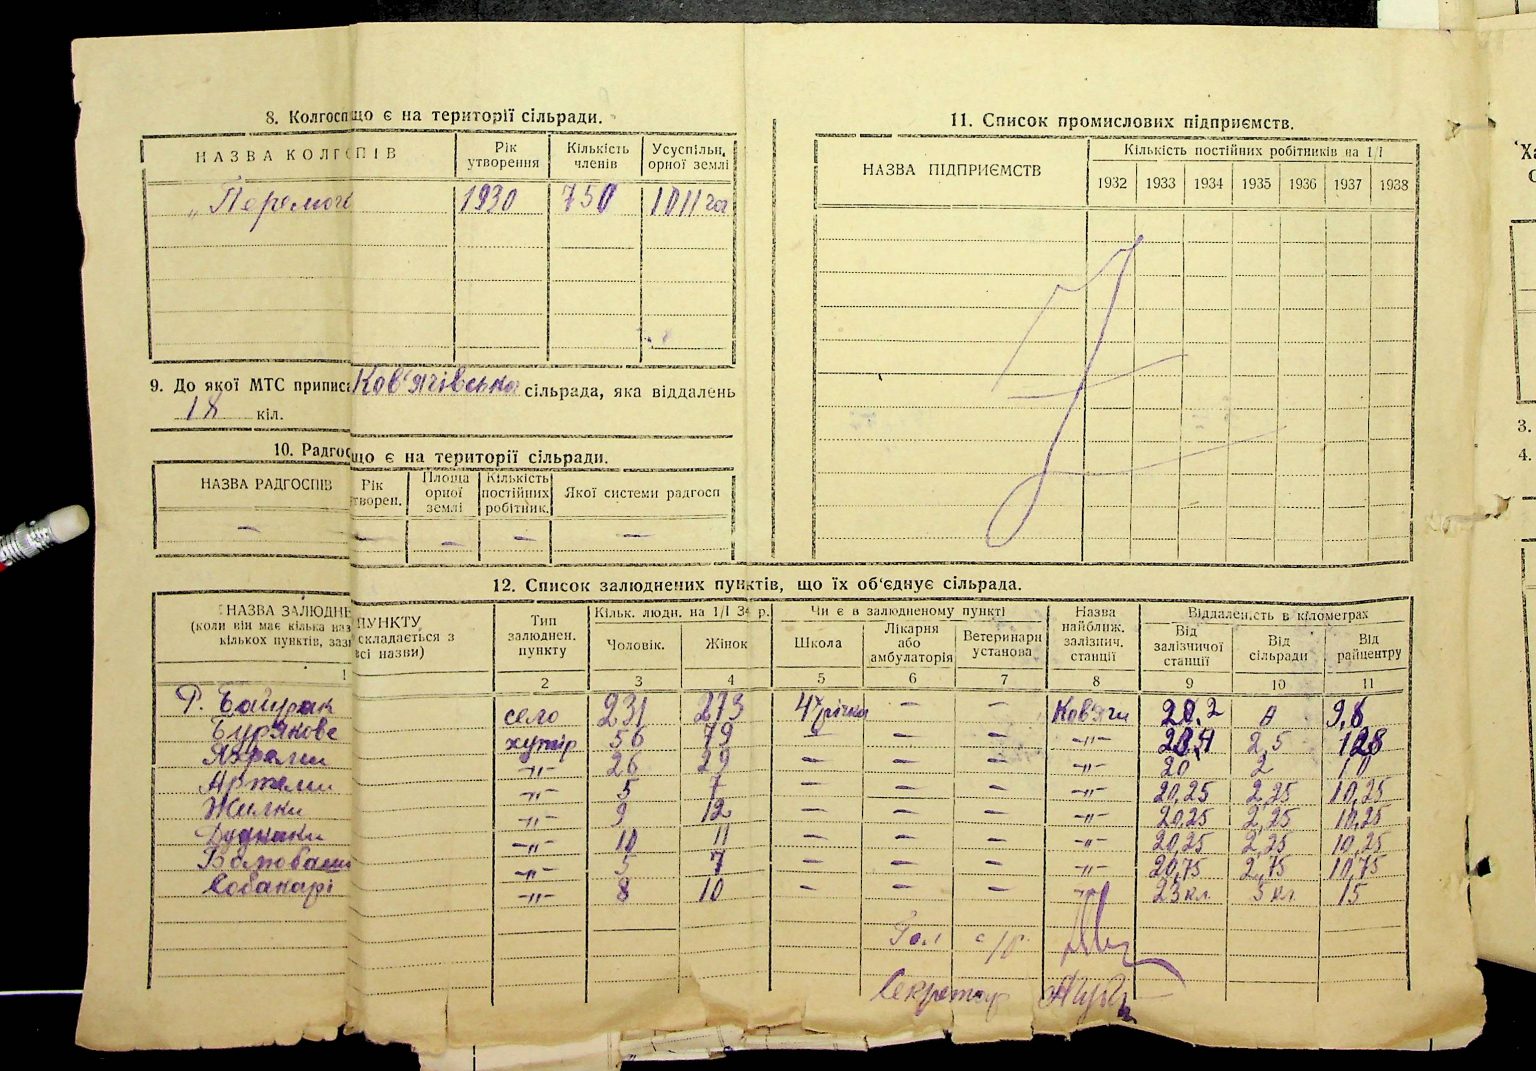 8. Колгосп що є на території сільради.
НАЗВА КОЛГОСПІВ | Рік утворення | Кількість членів | Усуспільн. орної землі
„Перемога | 1930 | 750 | 1011 га
9. До якої МТС приписа Ков'ягівська сільрада, яка віддалень
18 кіл.
10. Радгос що є на території сільради.
НАЗВА РАДГОСПІВ | Рік творен. | Площа орної землі | Кількість постійних робітник. | Якої системи радгосп
— | — | — | — | —
11. Список промислових підприємств.
НАЗВА ПІДПРИЄМСТВ | Кількість постійних робітників на 1/I
1932 | 1933 | 1934 | 1935 | 1936 | 1937 | 1938
12. Список залюднених пунктів, що їх об'єднує сільрада.
НАЗВА ЗАЛЮДНЕ ПУНКТУ (коли він має кілька наз складається з кількох пунктів, заз всі назви) | Тип залюднен. пункту | Кільк. людн. на 1/I 34 р. | Чи є в залюдненому пункті | Назва найближ. залізнич. станції | Віддаленість в кілометрах
Чоловік. | Жінок | Школа | Лікарня або амбулаторія | Ветеринарн установа | Від залізничої станції | Від сільради | Від райцентру
1 | 2 | 3 | 4 | 5 | 6 | 7 | 8 | 9 | 10 | 11
Р. Байрак | село | 231 | 273 | 4х річка | — | — | Ков'яги | 20,2 | | 9,8
Бурякове | хутір | 56 | 79 | — | — | — | —"— | | 2,5 | 12,8
Яхреми | —"— | 26 | 29 | — | — | — | —"— | 20 | 2 | 10
Артеми | —"— | 5 | 7 | — | — | — | —"— | 20,25 | 2,25 | 10,25
Жилки | —"— | 9 | 12 | — | — | — | —"— | 20,25 | 2,25 | 10,25
—"— | 10 | 11 | — | — | — | —"— | 20,25 | 2,25 | 10,25
—"— | 5 | 7 | — | — | — | —"— | 20,75 | 2,75 | 10,75
Собакарі | —"— | 8 | 10 | — | — | — | —"— | 23 кл. | 5 кл. | 15
Гол. с/р.
Секретар